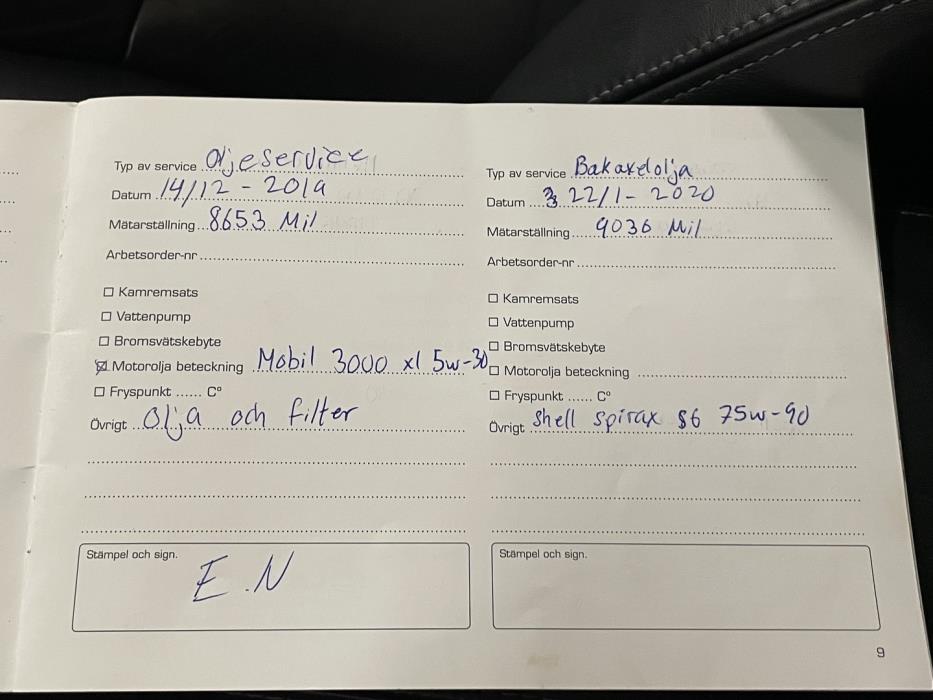 Typ av service Oljeservice
Datum 14/12 - 2019
Mätarställning 8653 Mil
Arbetsorder-nr
☐ Kamremsats
☐ Vattenpump
☐ Bromsvätskebyte
☒ Motorolja beteckning Mobil 3000 xl 5w-30
☐ Fryspunkt ...... C°
Övrigt olja och filter
Stämpel och sign.
E.N
Typ av service Bakaxelolja
Datum 22/1 - 2020
Mätarställning 9036 Mil
Arbetsorder-nr
☐ Kamremsats
☐ Vattenpump
☐ Bromsvätskebyte
☐ Motorolja beteckning
☐ Fryspunkt ...... C°
Övrigt Shell spirax S6 75w-90
Stämpel och sign.
9